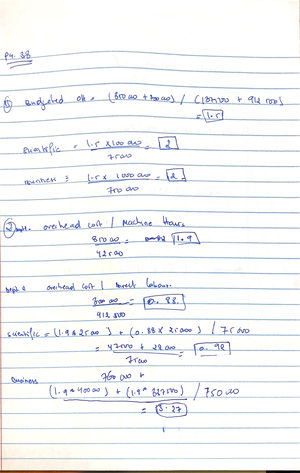 P4. 38
① budgeted oh = (850000 + 800000) / (187500 + 912500)
= 1.5
Scientific = 1.5 x 100 000 = 2
75000
business = 1.5 x 1000 000 = 2
750 000
② overhead cost / Machine Hours
850000 = 1.9
42500
dept 2 overhead cost / direct labour.
800 000 = 0.88
912 500
scientific = (1.9 x 2500) + (0.88 x 25000) / 75000
= 47500 + 22000 = 0.92
75000
business 760 000 +
(1.9 * 40000) + (1.9 * 887500) / 750 000
= 3.27